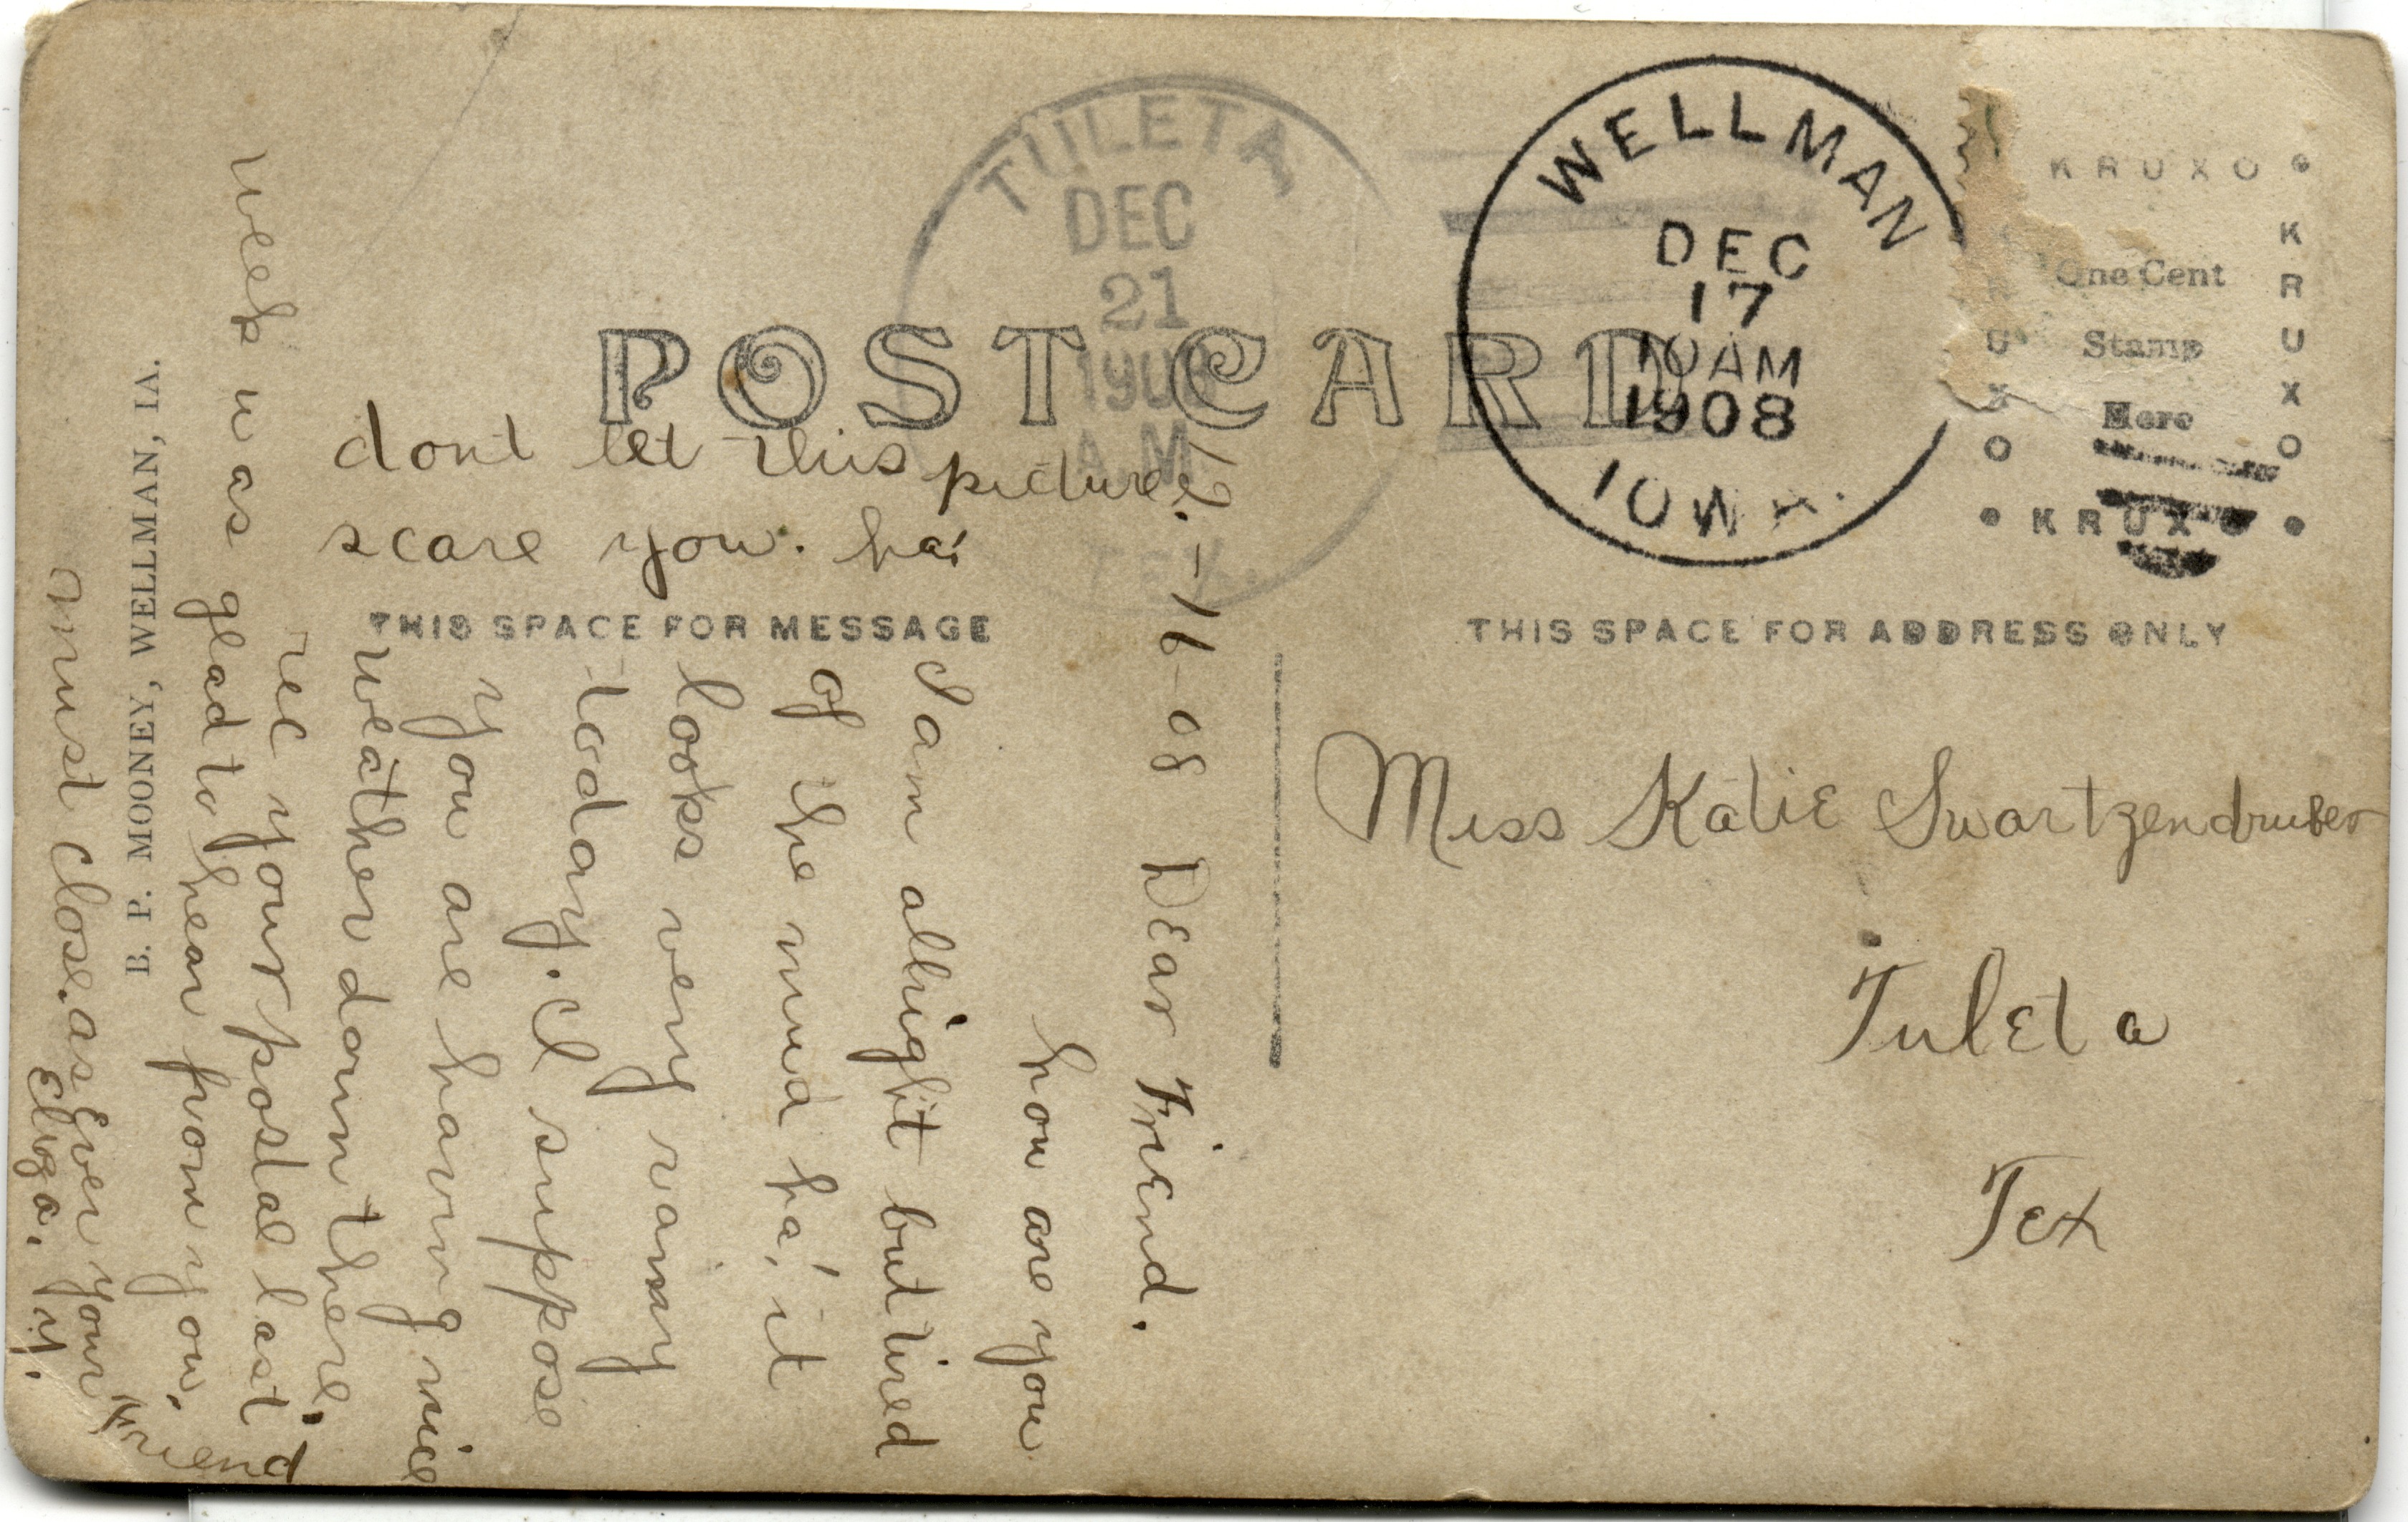 POST CARD
TULETA
DEC
21
1908
A.M.
TEX.
WELLMAN
DEC
17
10 AM
1908
IOWA.
KRUXO
KRUXO
One Cent
Stamp
Here
KRUXO
dont let this picture
scare you. ha!
THIS SPACE FOR MESSAGE
THIS SPACE FOR ADDRESS ONLY
Miss Katie Swartzendruber
Tuleta
Tex
12.-16-08 Dear Friend.
how are you
I am allright but tired
of the mud ha! it
looks very rainy
today. I suppose
you are having nice
weather down there.
rec your postal last
week was glad to hear from you.
B. P. MOONEY, WELLMAN, IA.
must close. as Ever your Friend
Eliza. Y.